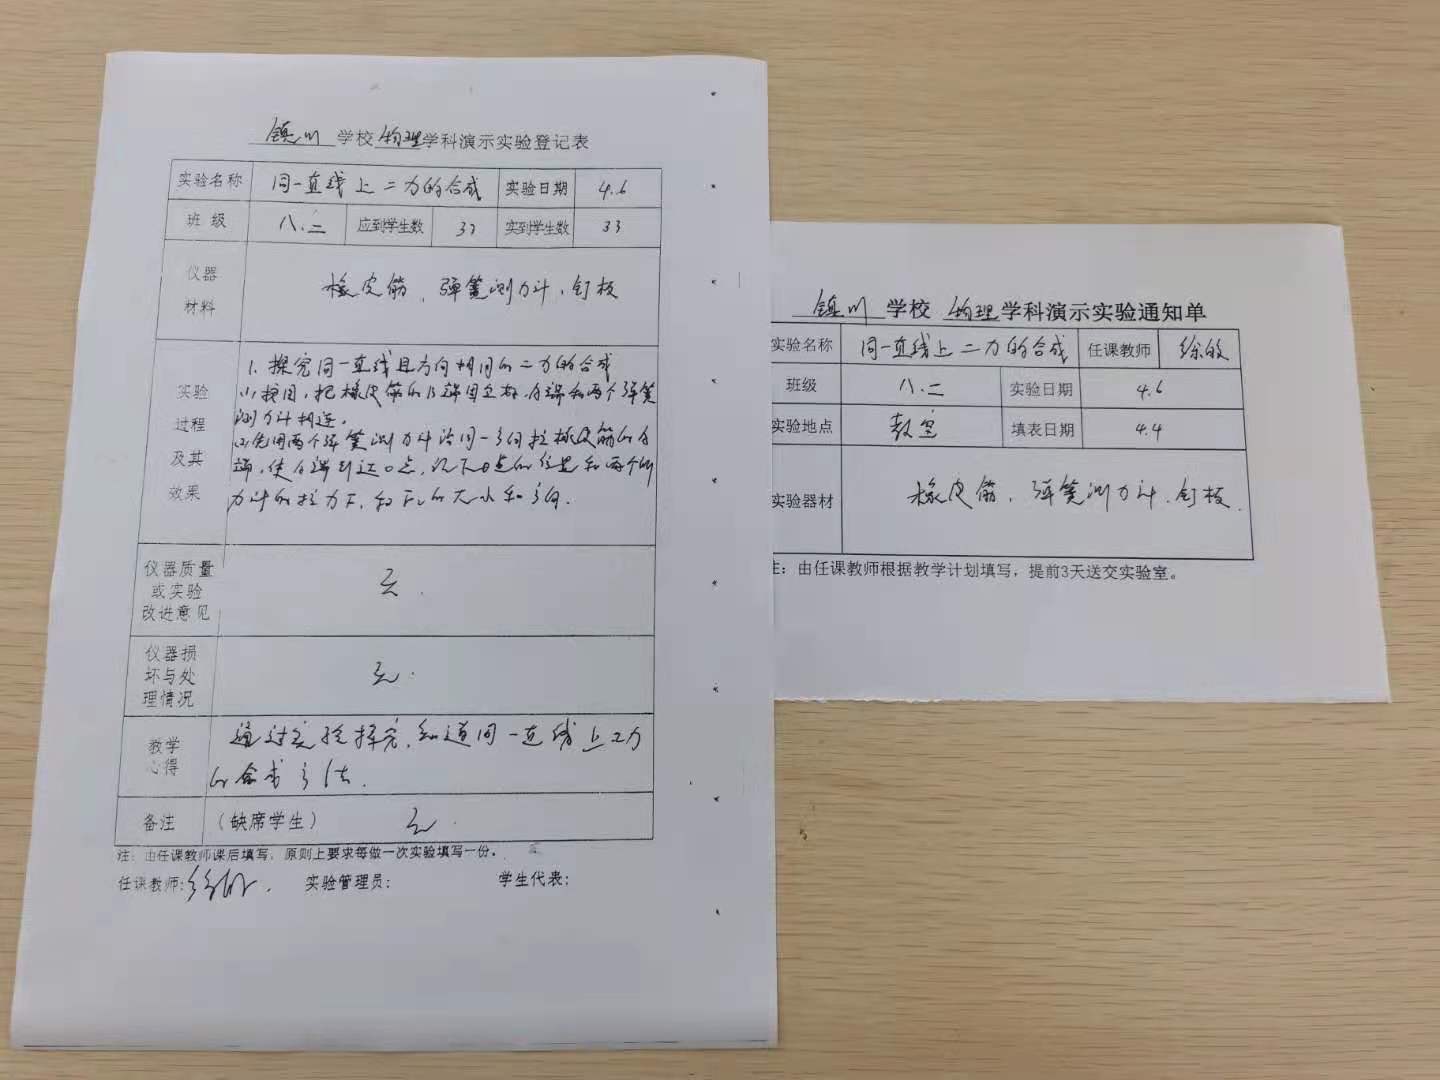 镇川 学校 物理学科演示实验登记表
实验名称 同一直线上二力的合成 实验日期 4.6
班 级 八.二 应到学生数 33 实到学生数 33
仪器
材料 橡皮筋、弹簧测力计、钉板
实验
过程
及其
效果
1. 探究同一直线且方向相同的二力的合成
(1)按图,把橡皮筋的B端固定在,A端和两个弹簧
测力计相连。
(2)先用两个弹簧测力计沿同一方向拉橡皮筋的A
端,使A端到达O点,记下O点的位置和两个测
力计的拉力F₁和F₂的大小和方向.
仪器质量
或实验
改进意见 无.
仪器损
坏与处
理情况 无.
教学
心得
通过实验探究,知道同一直线上二力
的合成方法.
备注 (缺席学生) 无.
注:由任课教师课后填写,原则上要求每做一次实验填写一份。
任课教师:徐皎. 实验管理员: 学生代表:
镇川 学校 物理学科演示实验通知单
实验名称 同一直线上二力的合成 任课教师 徐皎
班级 八.二 实验日期 4.6
实验地点 教室 填表日期 4.4
实验器材 橡皮筋、弹簧测力计、钉板.
注:由任课教师根据教学计划填写,提前3天送交实验室。